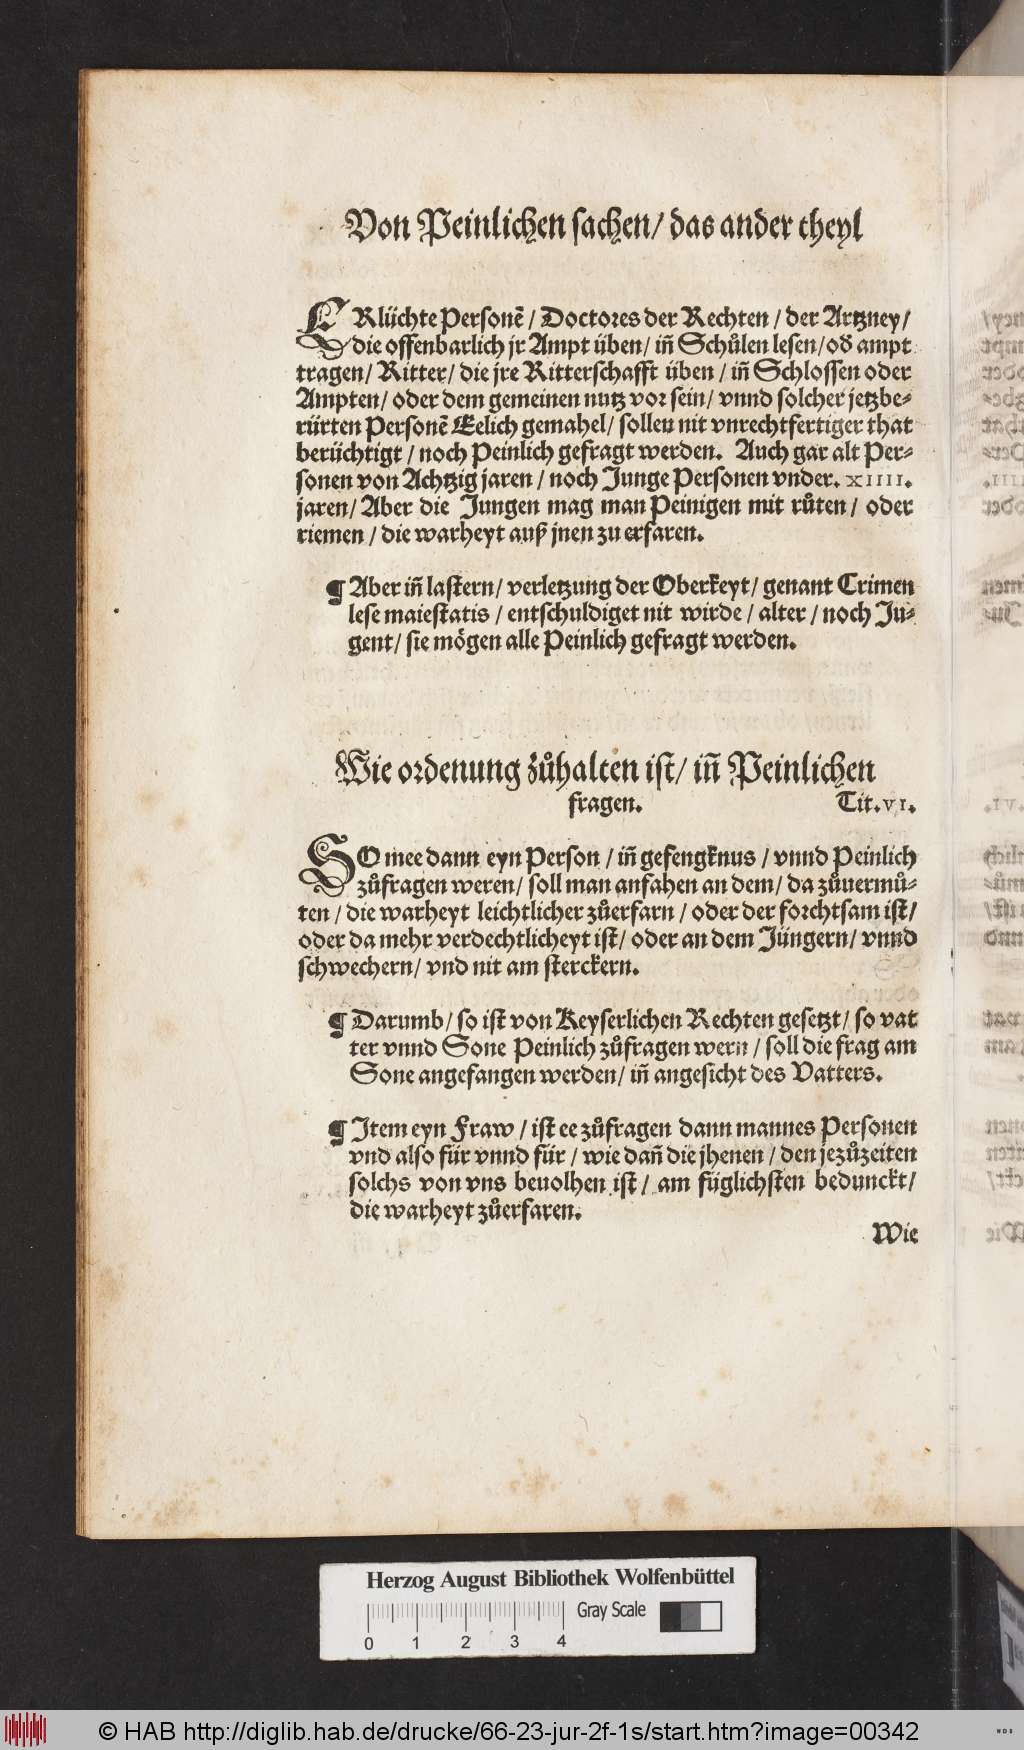 Von Peinlichen sachen/ das ander theyl
ERlüchte Personẽ / Doctores der Rechten / der Artzney/
die offenbarlich jr Ampt üben/ iñ Schůlen lesen/ od̕ ampt
tragen/ Ritter/ die jre Ritterschafft üben / iñ Schlossen oder
Ampten/ oder dem gemeinen nutz vor sein/ vnnd solcher jetzbe⸗
rürten Personẽ Eelich gemahel/ sollen nit vnrechtfertiger that
berüchtigt / noch Peinlich gefragt werden. Auch gar alt Per⸗
sonen von Achtzig jaren / noch Junge Personen vnder. XIIII.
jaren/ Aber die Jungen mag man Peinigen mit růten/ oder
riemen / die warheyt auß jnen zu erfaren.
¶ Aber iñ lastern/ verletzung der Oberkeyt/ genant Crimen
lese maiestatis / entschuldiget nit wirde / alter / noch Ju⸗
gent/ sie mögen alle Peinlich gefragt werden.
Wie ordenung zůhalten ist/ iñ Peinlichen
fragen. Tit. VI.
SO mee dann eyn Person / iñ gefengknus / vnnd Peinlich
zůfragen weren/ soll man anfahen an dem/ da zůuermů⸗
ten / die warheyt leichtlicher zůerfarn / oder der forchtsam ist/
oder da mehr verdechtlicheyt ist/ oder an dem Jüngern/ vnnd
schwechern/ vnd nit am sterckern.
¶ Darumb/ so ist von Keyserlichen Rechten gesetzt/ so vat
ter vnnd Sone Peinlich zůfragen wern / soll die frag am
Sone angefangen werden/ iñ angesicht des Vatters.
¶ Item eyn Fraw / ist ee zůfragen dann mannes Personen
vnd also für vnnd für / wie dañ die jhenen / den jezůzeiten
solchs von vns beuolhen ist / am füglichsten bedunckt/
die warheyt zůerfaren.
Wie
Herzog August Bibliothek Wolfenbüttel
Gray Scale
0 1 2 3 4
© HAB http://diglib.hab.de/drucke/66-23-jur-2f-1s/start.htm?image=00342